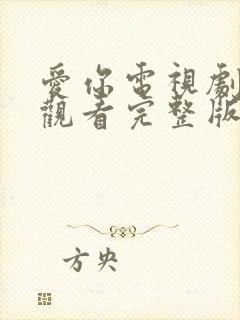 愛你電視劇
觀看完整版
方央